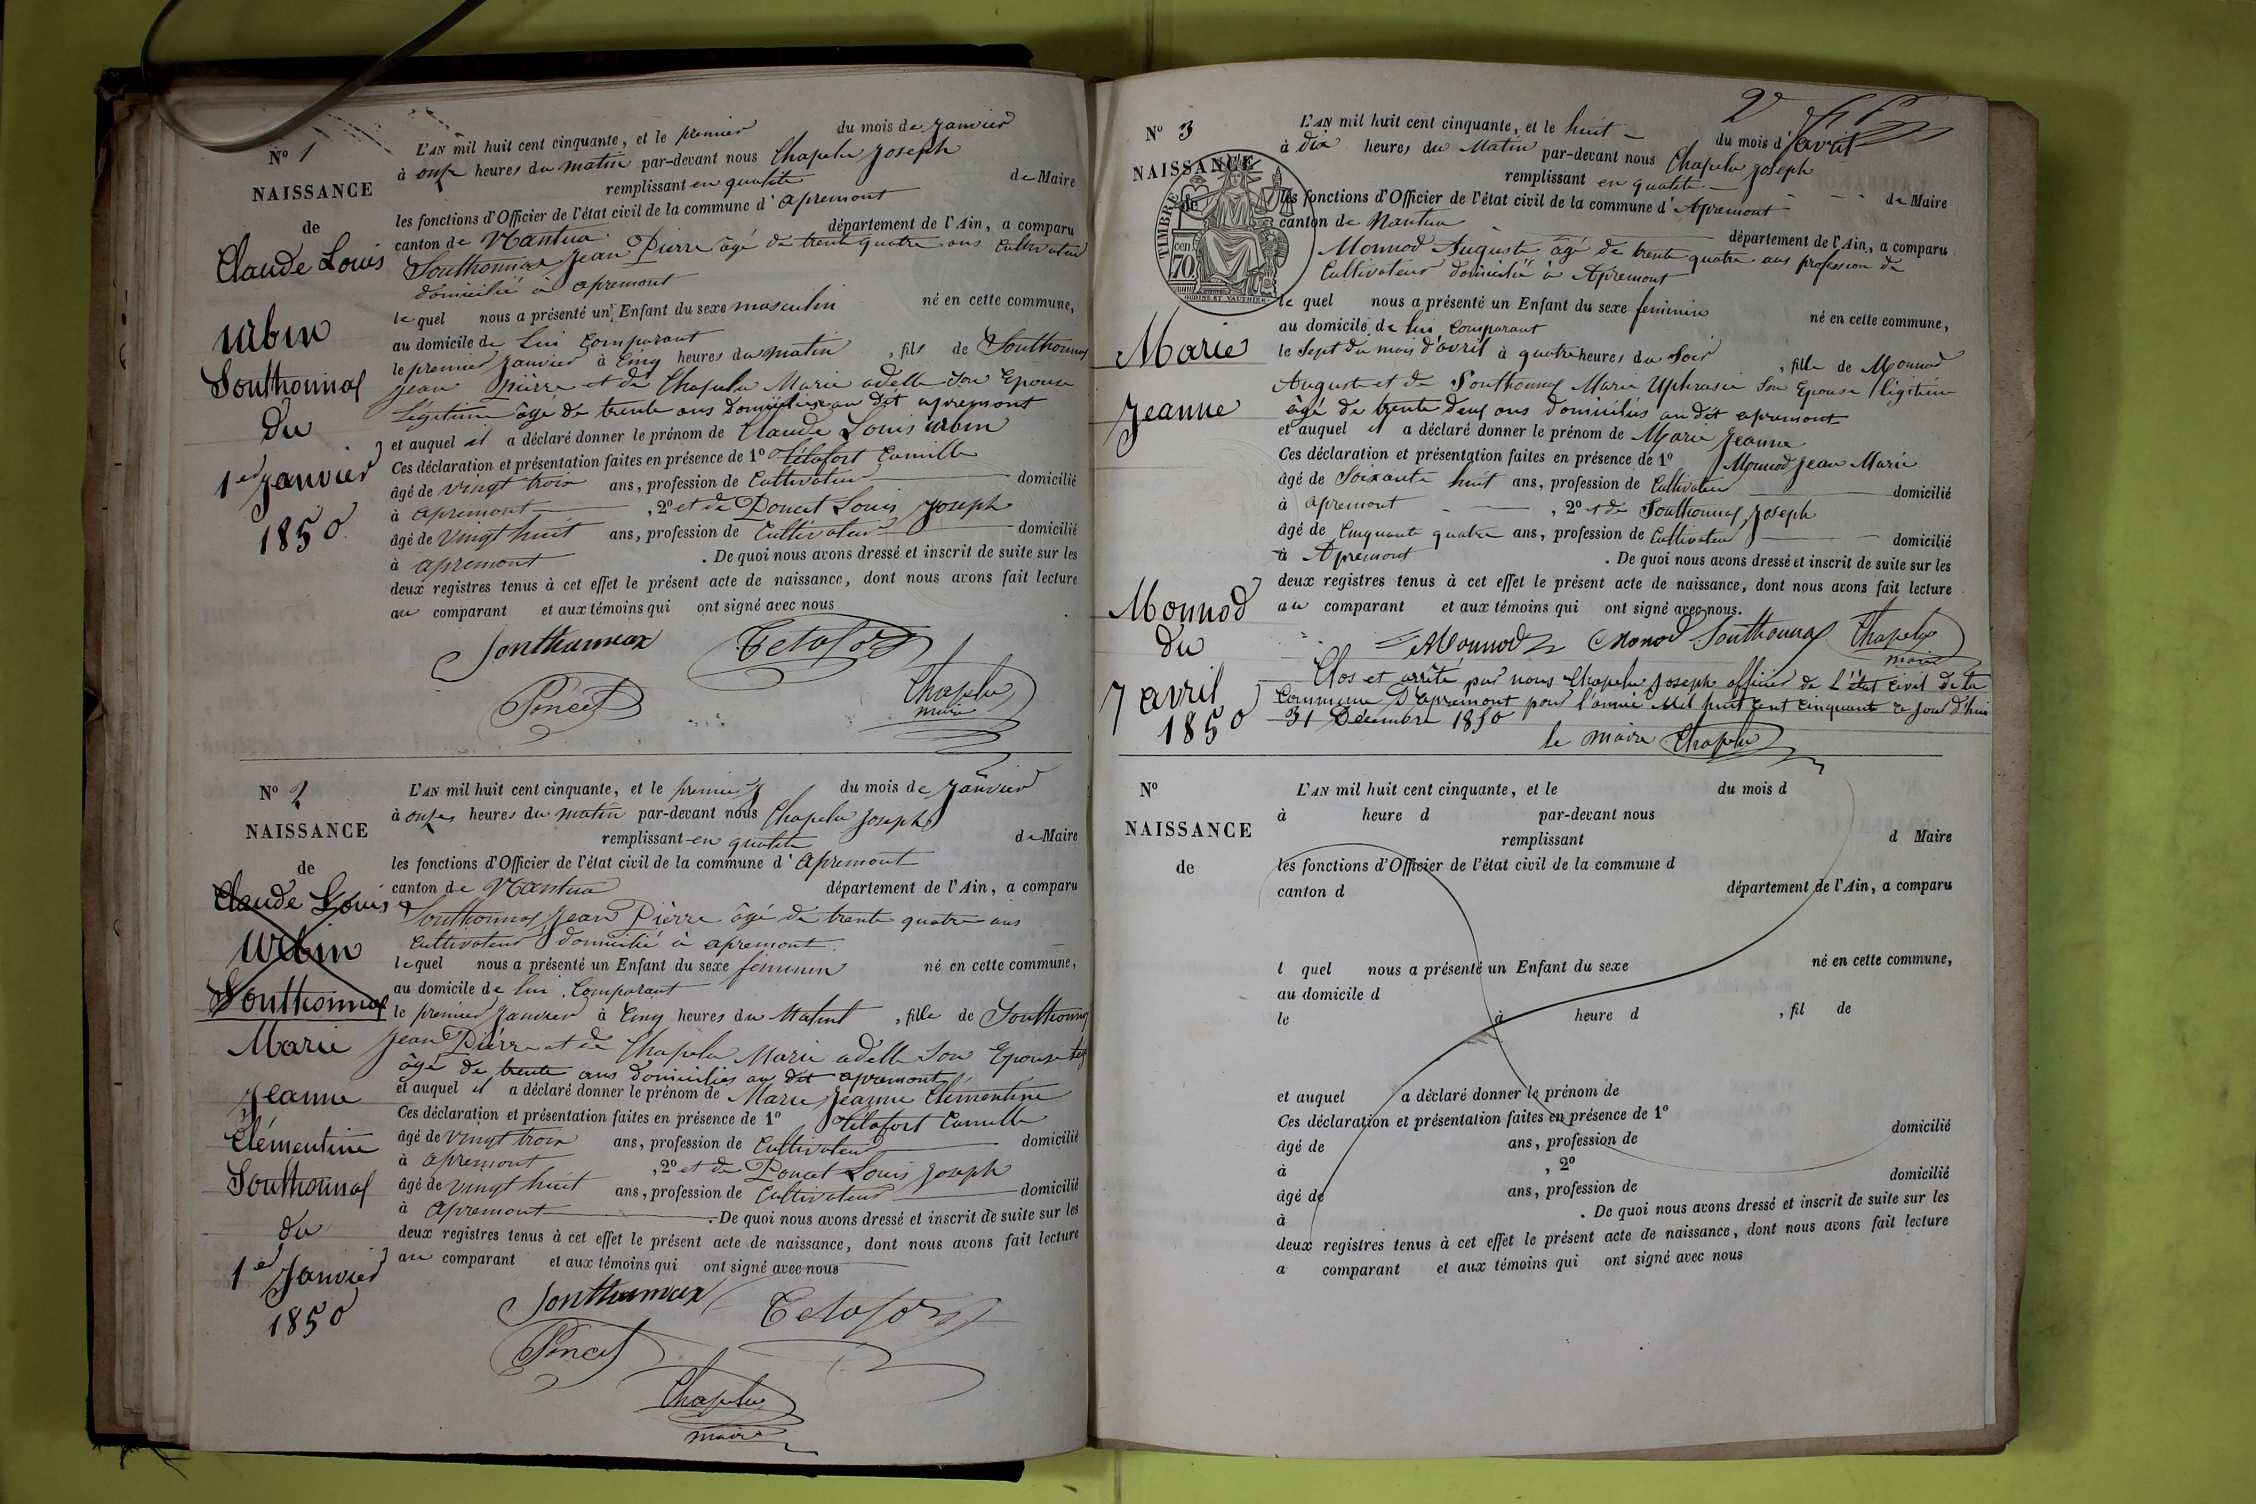 N° 1
NAISSANCE
de
Claude Louis
Urbin
Southonnax
du
1er Janvier
1850
L'AN mil huit cent cinquante, et le premier du mois de Janvier
à onze heures du matin par-devant nous Chapelu Joseph
remplissant en qualité de Maire
les fonctions d'Officier de l'état civil de la commune d'apremont
canton de Nantua département de l'Ain, a comparu
Southonnax Jean Pierre âgé de trente quatre ans Cultivateur
domicilié à apremont
lequel nous a présenté un Enfant du sexe masculin né en cette commune,
au domicile de lui Comparant
le premier Janvier à Cinq heures du matin, fils de Southonnax
Jean Pierre et de Chapelu Marie adelle son Epouse
légitime âgé de trente ans domiciliés au dit apremont
et auquel il a déclaré donner le prénom de Claude Louis urbin
Ces déclaration et présentation faites en présence de 1° Tétafort Camille
âgé de vingt trois ans, profession de Cultivateur domicilié
à apremont, 2° et de Poncet Louis Joseph
âgé de vingt huit ans, profession de Cultivateur domicilié
à apremont. De quoi nous avons dressé et inscrit de suite sur les
deux registres tenus à cet effet le présent acte de naissance, dont nous avons fait lecture
au comparant et aux témoins qui ont signé avec nous
Southonnax Tetafort
Poncet Chapelu
maire
N° 2
NAISSANCE
de
Claude Louis
Urbin
Southonnax
Marie
Jeanne
Clémentine
Southonnax
du
1er Janvier
1850
L'AN mil huit cent cinquante, et le premier du mois de Janvier
à onzes heures du matin par-devant nous Chapelu Joseph
remplissant en qualité de Maire
les fonctions d'Officier de l'état civil de la commune d'apremont
canton de Nantua département de l'Ain, a comparu
Southonnax Jean Pierre âgé de trente quatre ans
Cultivateur domicilié à apremont
lequel nous a présenté un Enfant du sexe féminin né en cette commune,
au domicile de lui Comparant
le premier Janvier à Cinq heures du Matint, fille de Southonnax
Jean Pierre et de Chapelu Marie adelle son Epouse leg
âgé de trente ans domiciliés au dit apremont
et auquel il a déclaré donner le prénom de Marie Jeanne Clémentine
Ces déclaration et présentation faites en présence de 1° Tétafort Camille
âgé de vingt trois ans, profession de Cultivateur domicilié
à apremont, 2° et de Poncet Louis Joseph
âgé de vingt huit ans, profession de Cultivateur domicilié
à apremont. De quoi nous avons dressé et inscrit de suite sur les
deux registres tenus à cet effet le présent acte de naissance, dont nous avons fait lecture
au comparant et aux témoins qui ont signé avec nous
Southonnax Tetafort
Poncet
Chapelu
maire
2
N° 3
NAISSANCE
de
TIMBRE
70 cen
OUDINE ET VAUTHIER
Marie
Jeanne
Monnod
du
7 avril
1850
L'AN mil huit cent cinquante, et le huit du mois d'avril
à dix heures du Matin par-devant nous Chapelu Joseph
remplissant en qualité de Maire
les fonctions d'Officier de l'état civil de la commune d'Apremont
canton de Nantua département de l'Ain, a comparu
Monnod Auguste âgé de trente quatre ans profession de
Cultivateur domicilié à Apremont
lequel nous a présenté un Enfant du sexe feminin né en cette commune,
au domicile de lui Comparant
le Sept du mois d'avril à quatre heures du Soir, fille de Monnod
Auguste et de Southonnax Marie Uphrasie son Epouse légitime
âgé de trente deux ans domiciliés au dit apremont
et auquel il a déclaré donner le prénom de Marie Jeanne
Ces déclaration et présentation faites en présence de 1° Monnod Jean Marie
âgé de Soixante huit ans, profession de Cultivateur domicilié
à apremont, 2° et de Southonnax Joseph
âgé de Cinquante quatre ans, profession de Cultivateur domicilié
à Apremont. De quoi nous avons dressé et inscrit de suite sur les
deux registres tenus à cet effet le présent acte de naissance, dont nous avons fait lecture
au comparant et aux témoins qui ont signé avec nous.
Monnod Monod Southonnax Chapelu
maire
Clos et arrêté par nous Chapelu Joseph officier de L'état Civil de la
Commune d'apremont pour l'année Mil huit Cent Cinquante ce jourd'hui
31 Decembre 1850
le maire Chapelu
N°
NAISSANCE
de
L'AN mil huit cent cinquante, et le du mois d
à heure d par-devant nous
remplissant d Maire
les fonctions d'Officier de l'état civil de la commune d
canton d département de l'Ain, a comparu
l quel nous a présenté un Enfant du sexe né en cette commune,
au domicile d
le à heure d, fil de
et auquel a déclaré donner le prénom de
Ces déclaration et présentation faites en présence de 1°
âgé de ans, profession de domicilié
à, 2°
âgé de ans, profession de domicilié
à. De quoi nous avons dressé et inscrit de suite sur les
deux registres tenus à cet effet le présent acte de naissance, dont nous avons fait lecture
a comparant et aux témoins qui ont signé avec nous